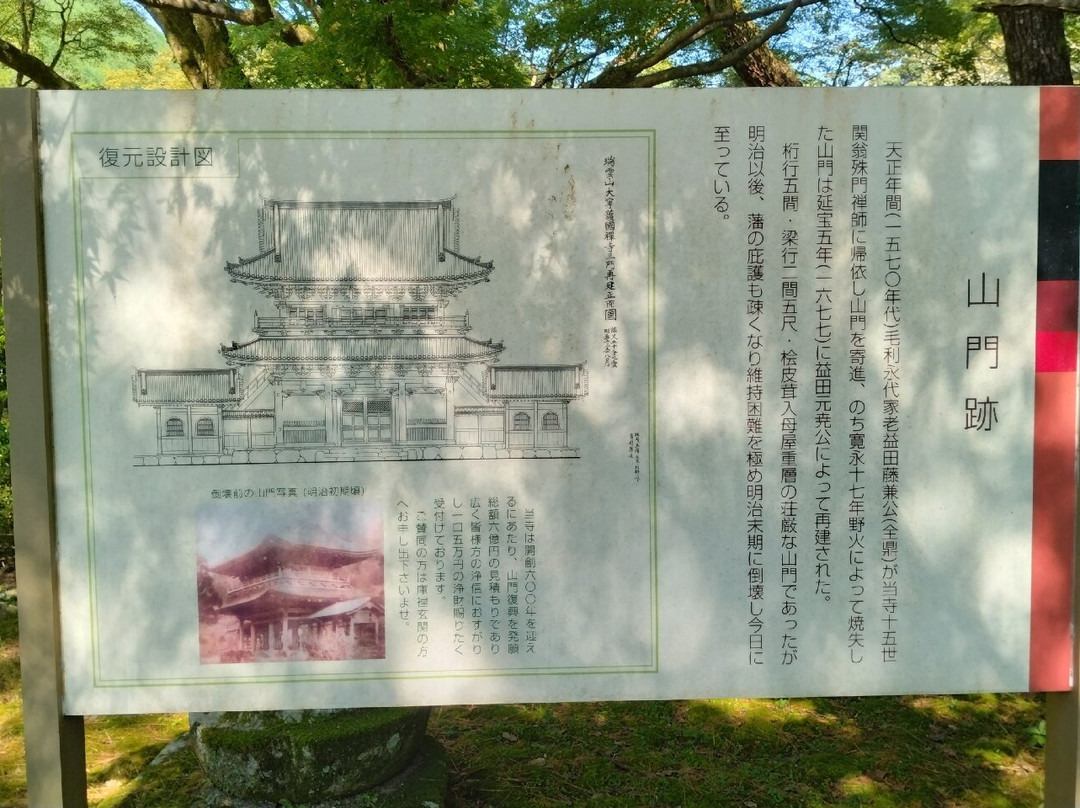 山門跡
天正年間(一五七〇年代)毛利永代家老益田藤兼公(全鼎)が当寺十五世
関翁殊門禅師に帰依し山門を寄進、のち寛永十七年野火によって焼失し
た山門は延宝五年(一六七七)に益田元尭公によって再建された。
桁行五間・梁行二間五尺・桧皮茸入母屋重層の荘厳な山門であったが
明治以後、藩の庇護も疎くなり維持困難を極め明治末期に倒壊し今日に
至っている。
復元設計図
瑞雲山大寧護國禅寺三門再建立面圖
倒壊前の山門写真(明治初期頃)
当寺は開創六〇〇年を迎え
るにあたり、山門復興を発願
総額六億円の見積もりであり
広く皆様方の浄信におすがり
し一口五万円の浄財賜りたく
受付けております。
ご賛同の方は庫裡玄関の方
へお申し出下さいませ。